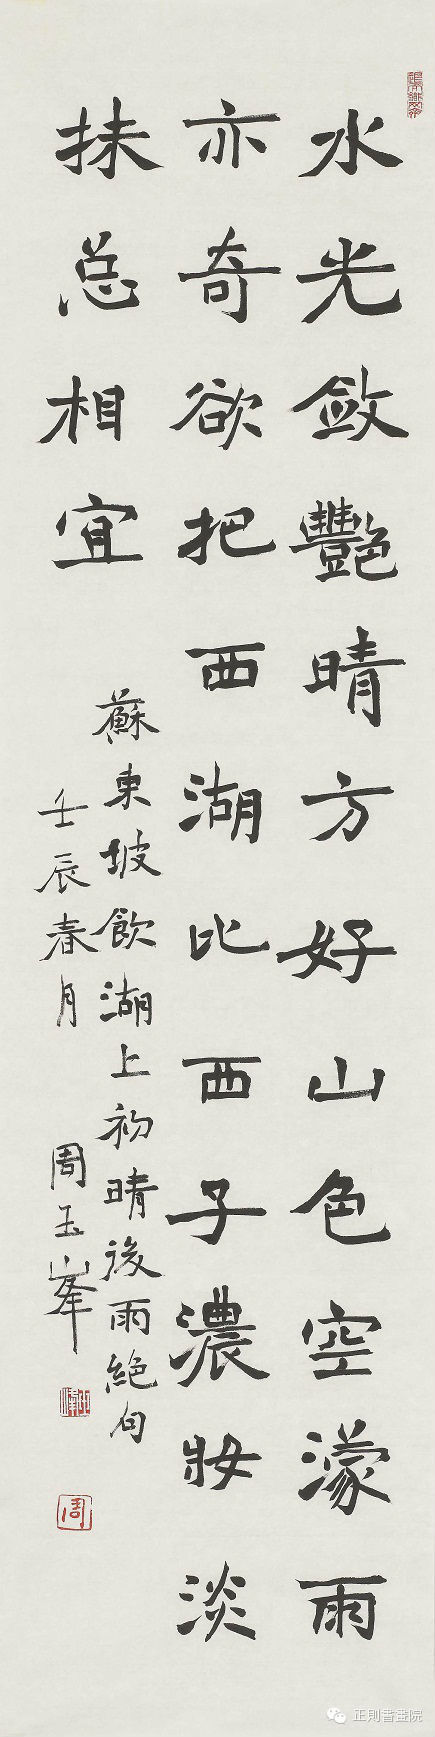 水光斂艷晴方好山色空濛雨
亦奇欲把西湖比西子濃妝淡
抹总相宜
蘇東坡飲湖上初晴後雨絕句
壬辰春月 周玉峯
周
正則書畫院